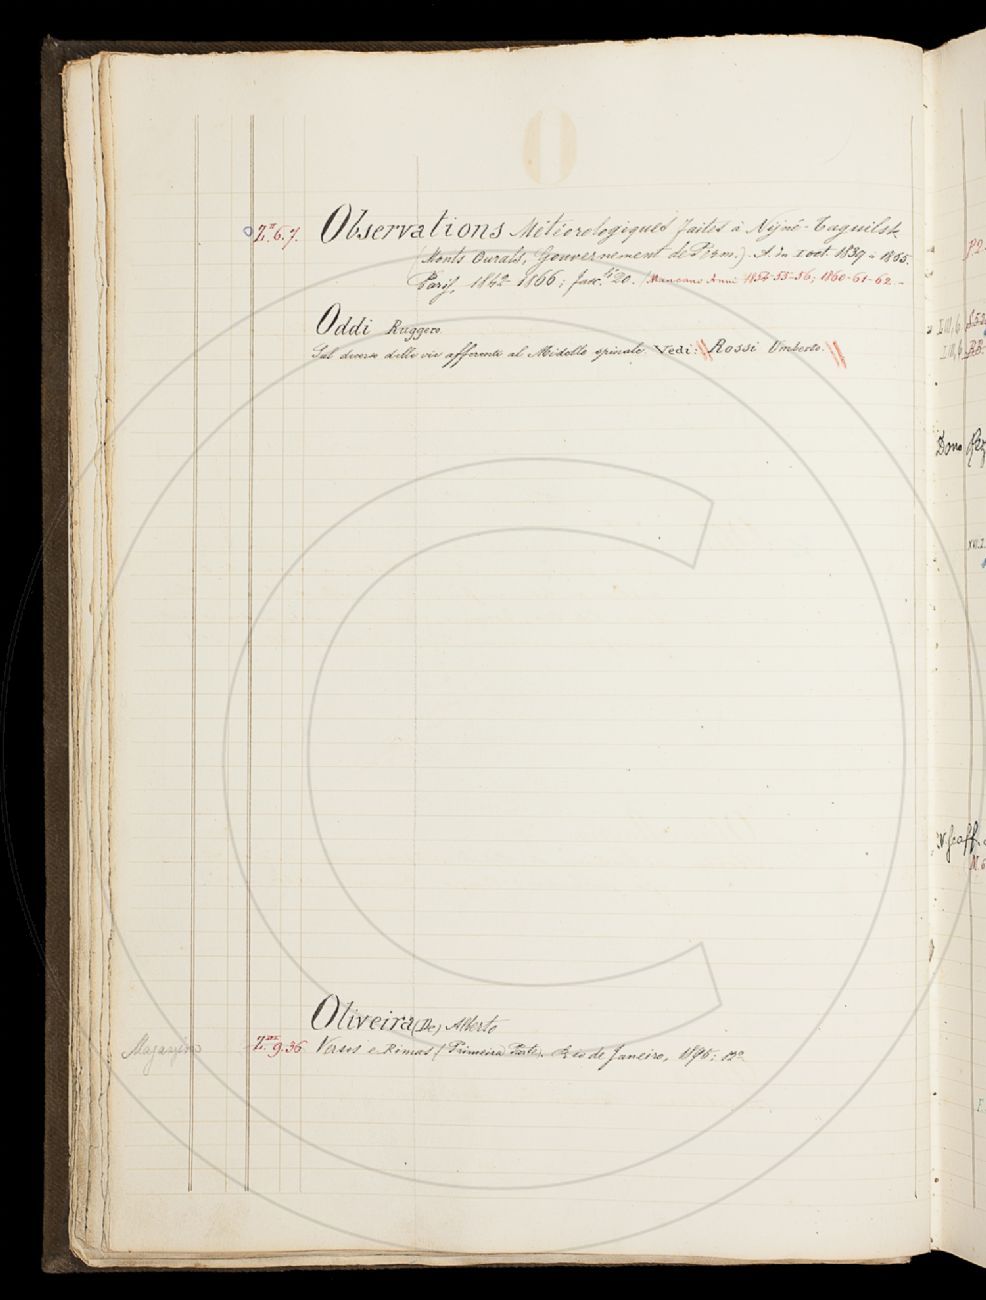 O
Z.ª 6. 7. Observations Météorologiques faites à Nijné-Taguilsk
(Monts Ourals, Gouvernement de Perm.) A. du 1 oct. 1839 à 1865.
Paris, 1842-1866; fasc.li 20. (Mancano Anni 1854-55-56; 1860-61-62.-
Oddi Ruggero
Sul decorso delle vie afferenti al Midollo spinale. Vedi: Rossi Umberto.
Oliveira (De) Alberto
Magazzino 9.36 Versos e Rimas (Primeira Parte). Rio de Janeiro, 1895; 12º
P2
I III, 6
I III, 6
Dono
XVI.I.